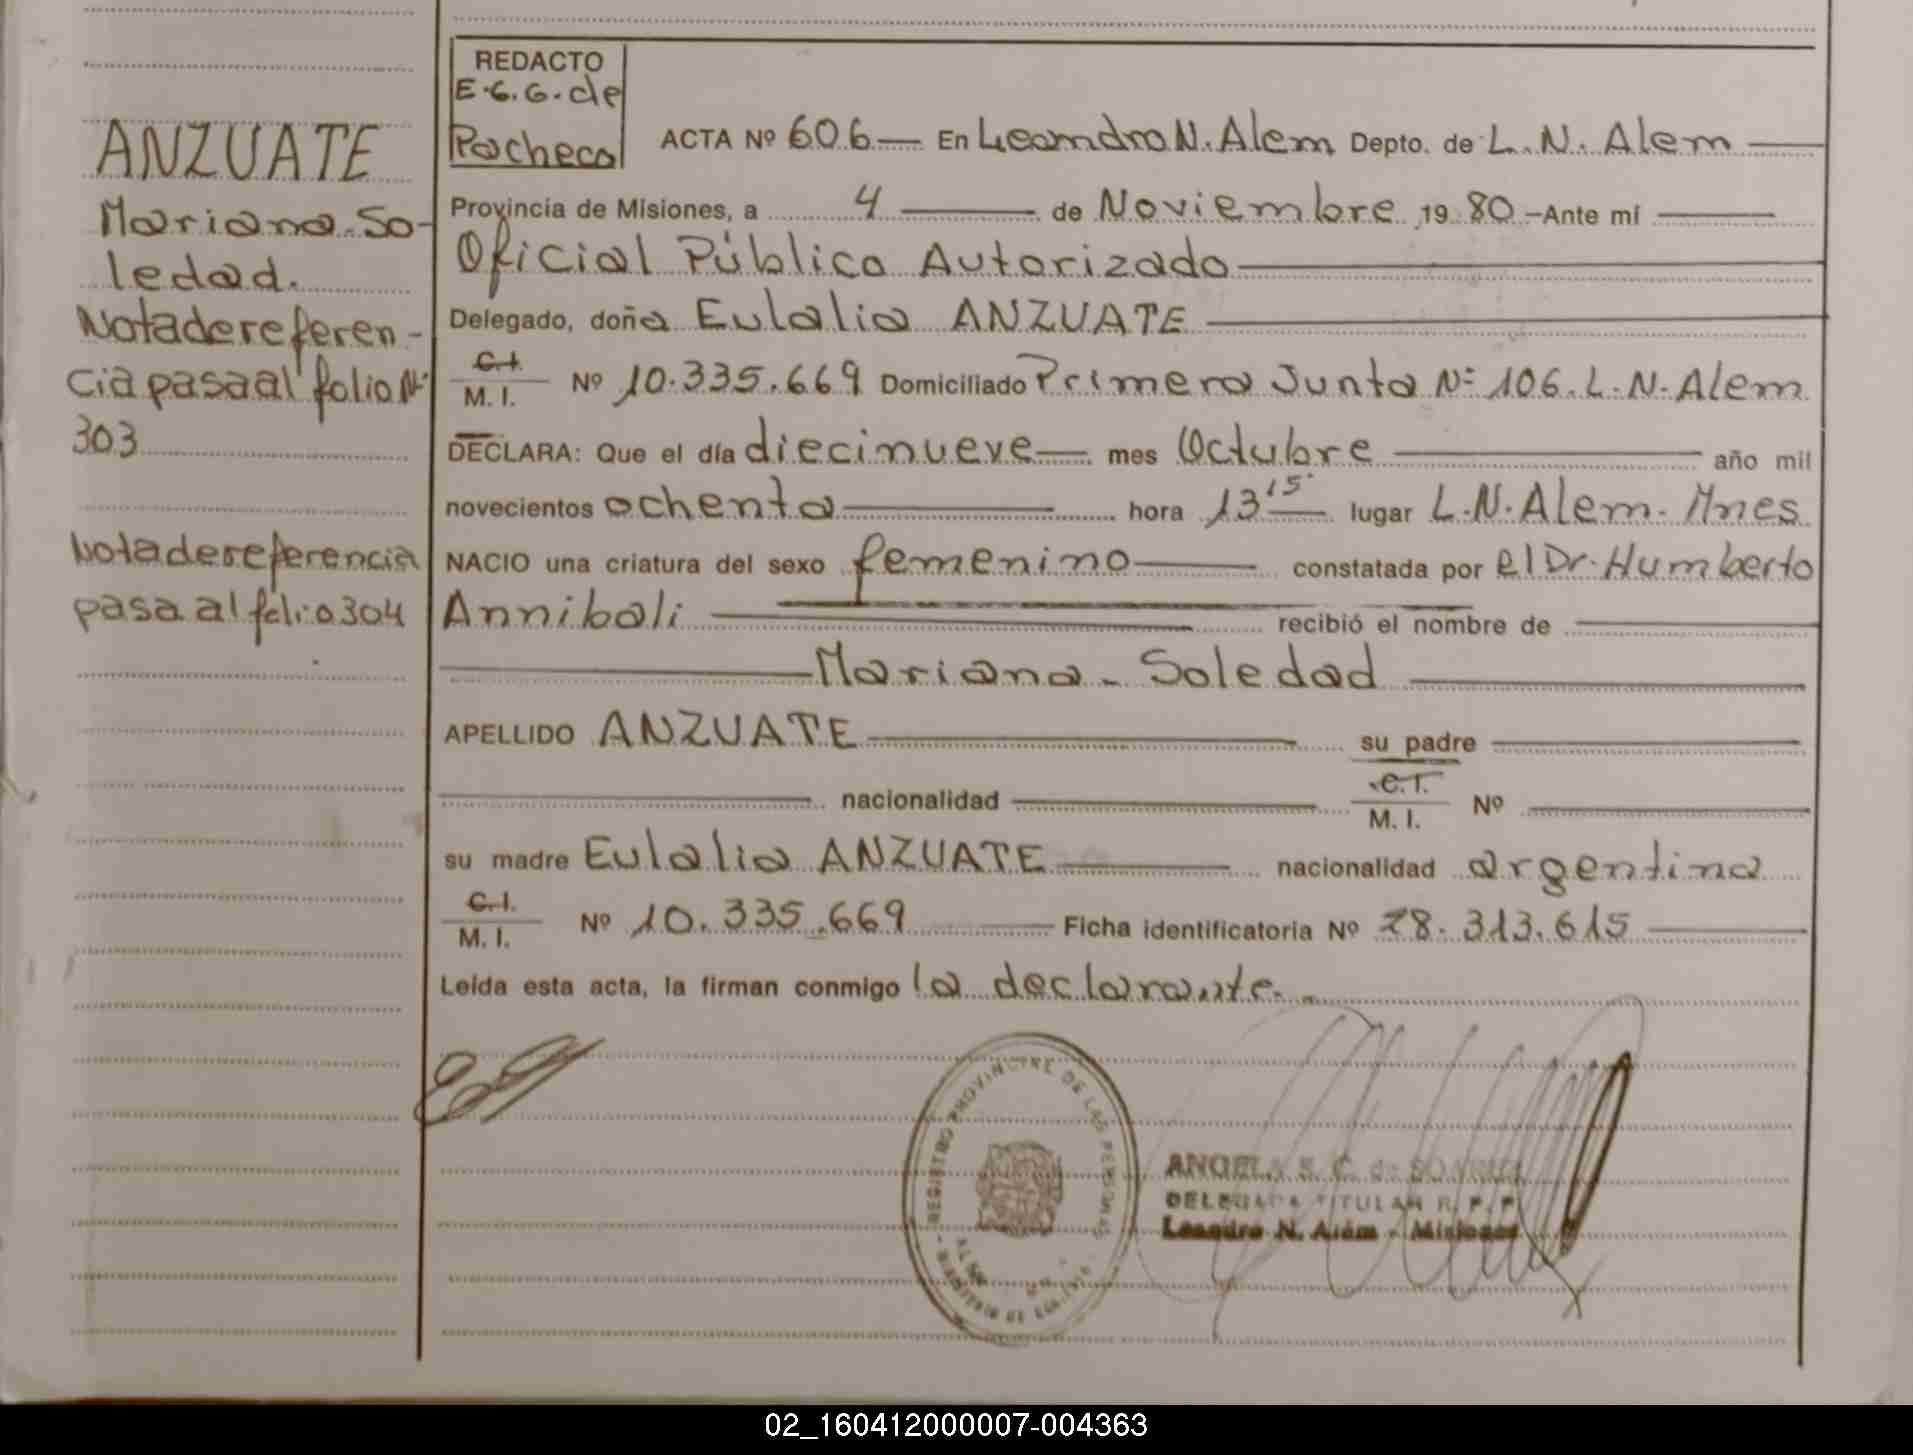 ANZUATE
Mariana So-
ledad.
Nota de referen-
cia pasa al folio Nº
303
Nota de referencia
pasa al folio 304
REDACTO
E.G.G. de
Pacheco
ACTA Nº 606 — En Leandro N. Alem Depto. de L. N. Alem —
Provincia de Misiones, a 4 — de Noviembre 19 80 - Ante mí —
Oficial Público Autorizado —
Delegado, doña Eulalia ANZUATE —
C.I.
M. I. Nº 10.335.669 Domiciliado Primera Junta Nº 106. L. N. Alem
DECLARA: Que el día diecinueve — mes Octubre — año mil
novecientos ochenta — hora 13 15 lugar L.N. Alem. Mnes
NACIO una criatura del sexo femenino — constatada por el Dr. Humberto
Annibali — recibió el nombre de —
— Mariana - Soledad —
APELLIDO ANZUATE — su padre —
— nacionalidad — C.I. M. I. Nº —
su madre Eulalia ANZUATE — nacionalidad argentina
C.I.
M. I. Nº 10.335.669 — Ficha identificatoria Nº 28.313.615 —
Leída esta acta, la firman conmigo la declarante.
REGISTRO PROVINCIAL DE LAS PERSONAS
ANGELA S. C. de
DELEGADA TITULAR R. P. P.
Leandro N. Além - Misiones
02_160412000007-004363